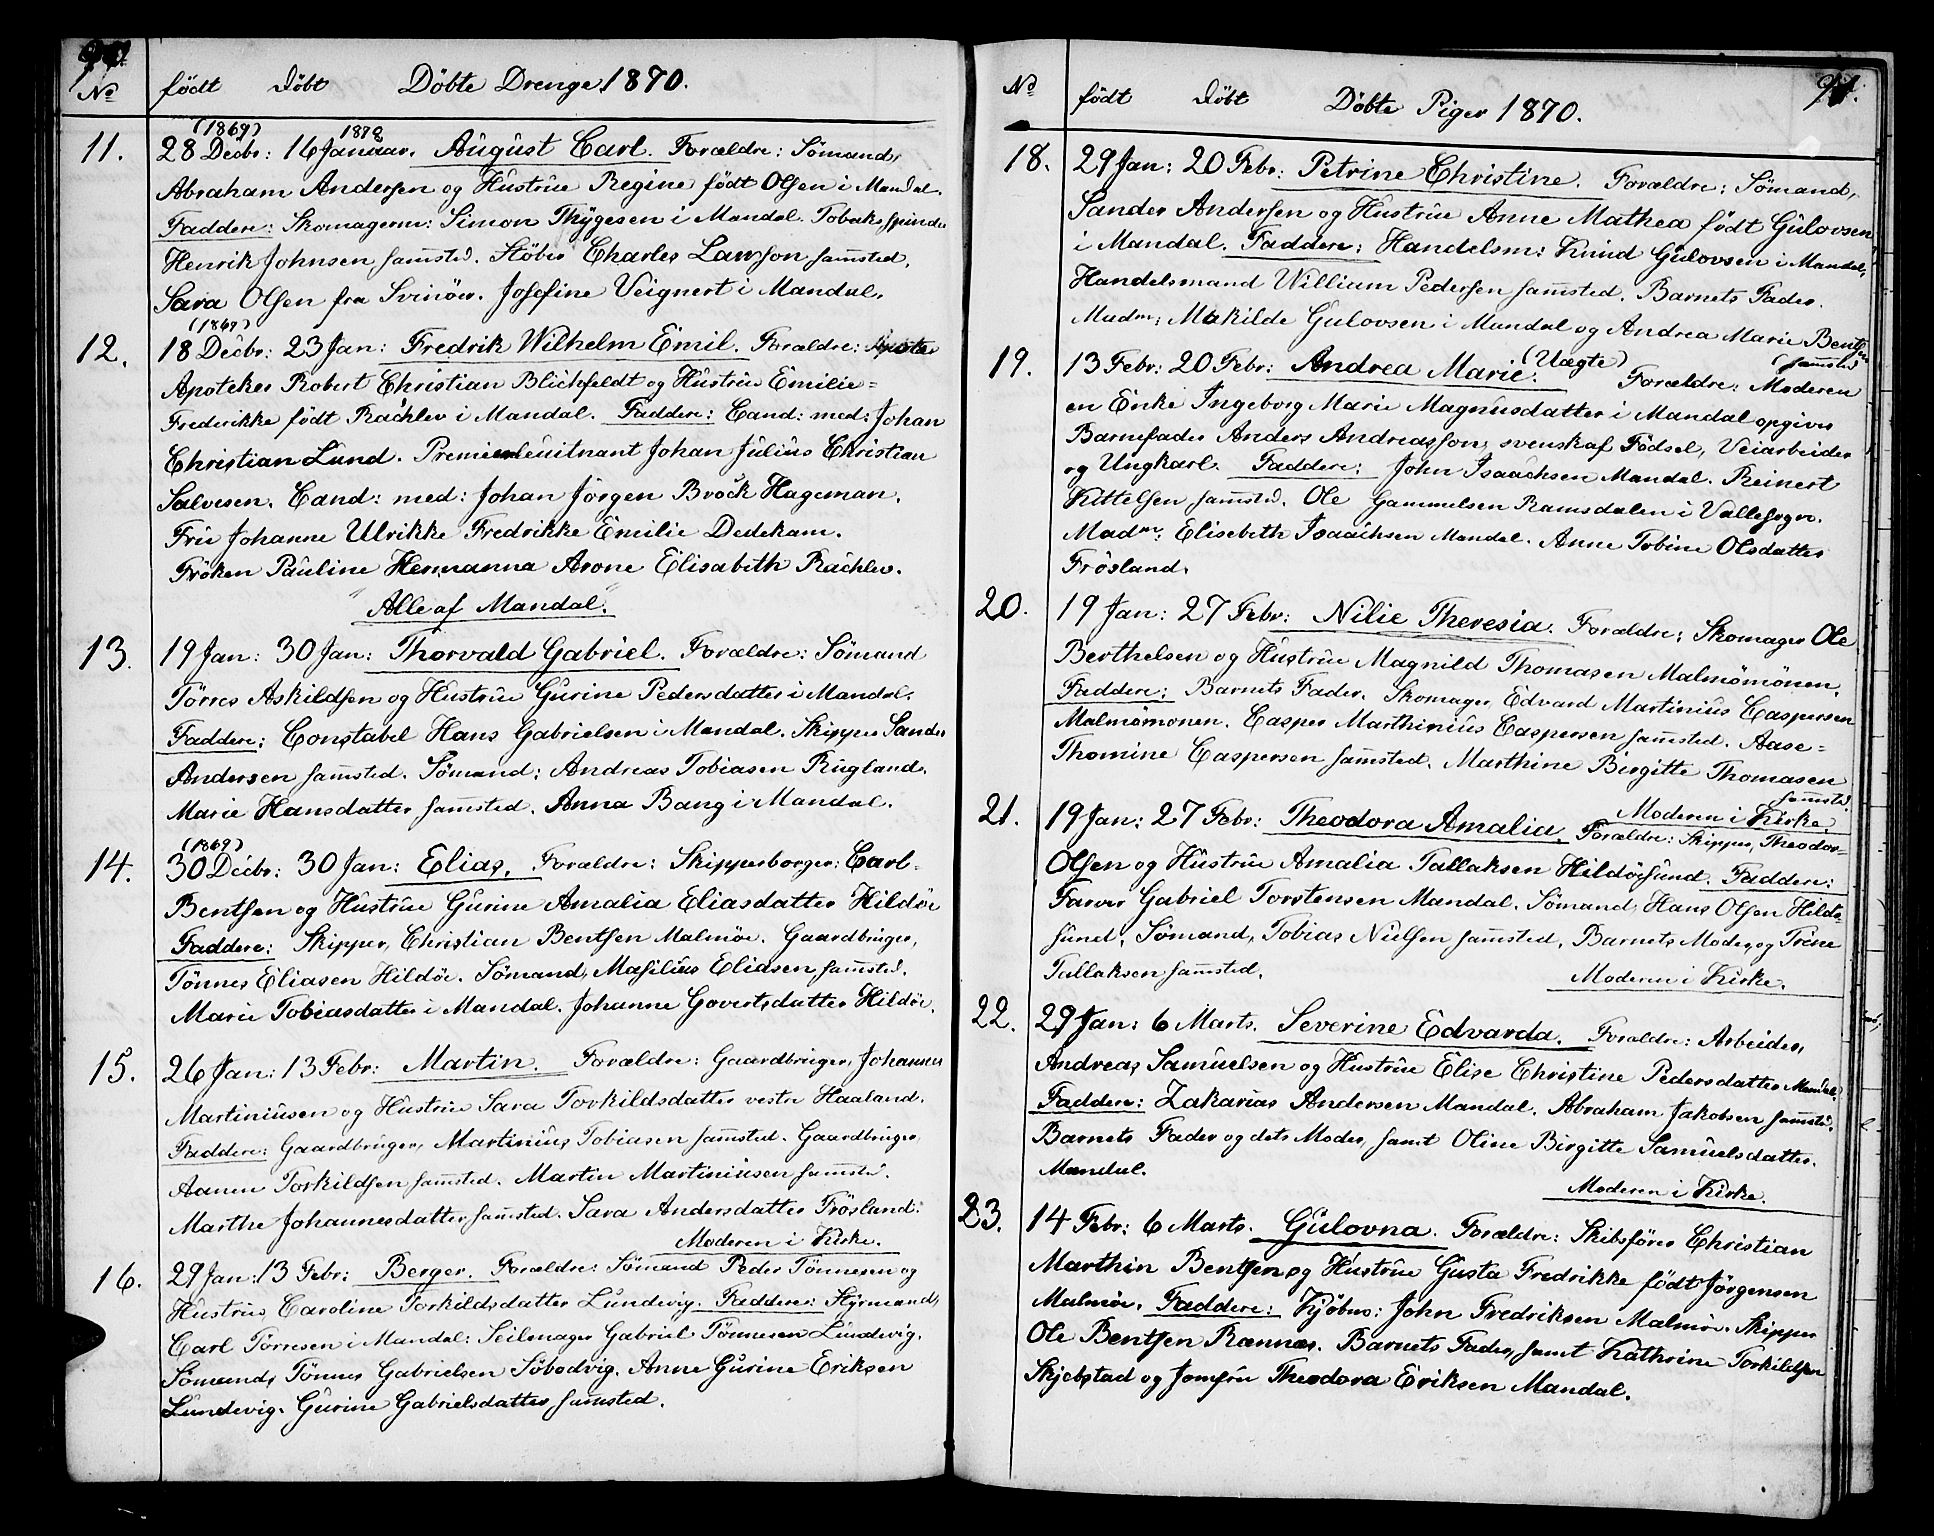 No født døbt Döbte Drenge 1870.
(1869) 1870
11. 28 Decbr: 16 Januar. August Carl. Forældre: Sömand,
Abraham Andersen og Hustrue Regine født Olsen i Mandal.
Faddere: Skomagerm: Simon Thÿgesen i Mandal. Tobaksspinder
Henrik Johnsen samsted. Støber Charles Lawson samsted.
Sara Olsen fra Svinöer. Josefine Veignert i Mandal.
(1869)
12. 18 Decbr: 23 Jan: Fredrik Wilhelm Emil. Forældre:
Apoteker Robert Christian Blichfeldt og Hustrue Emilie=
Frederikke født Rachlev i Mandal. Faddere: Cand: med: Johan
Christian Lund. Premierleuitnant Johan Julius Christian
Salvesen. Cand: med: Johan Jörgen Brock Hageman.
Frue Johanne Ulrikke Fredrikke Emilie Dedekam.
Fröken Pauline Hermanna Arone Elisabeth Rachlev.
Alle af Mandal.
13. 19 Jan: 30 Jan: Thorvald Gabriel. Forældre: Sömand
Törres Askildsen og Hustrue Gurine Pedersdatter i Mandal.
Faddere: Constabel Hans Gabrielsen i Mandal. Skipper Sander
Andersen samsted. Sömand: Andreas Tobiasen Rugland.
Marie Hansdatter samsted. Anna Bang i Mandal.
(1869)
14. 30 Decbr: 30 Jan: Elias. Forældre: Skipperborger: Carl-
Bentsen og Hustrue Gurine Amalia Eliasdatter Hildöe
Faddere: Skipper, Christian Bentsen Malmöe. Gaardbruger,
Tönnes Eliasen Hildöe. Sömand, Masilius Eliasen samsted.
Marie Tobiasdatter i Mandal. Johanne Govertsdatter Hildöe.
15. 26 Jan: 13 Febr: Martin. Forældre: Gaardbruger, Johannes
Martiniusen og Hustrue Sara Torkildsdatter vestre Haaland.
Faddere: Gaardbruger, Martinius Tobiasen samsted. Gaardbruger,
Aanen Torkildsen samsted. Martin Martiniusen samsted.
Marthe Johannesdatter samsted. Sara Andersdatter Frösland.
Moderen i Kirke.
16. 29 Jan: 13 Febr: Berger. Forældre: Sömand Peder Tönnesen og
Hustrue Caroline Torkildsdatter Lundevig. Faddere: Styrmand,
Carl Törresen i Mandal: Seilmager Gabriel Tönnesen Lundevig.
Sömand, Tönnes Gabrielsen Söbodvig. Anne Gurine Eriksen
Lundevig. Gurine Gabrielsdatter samsted.
No født døbt Döbte Piger 1870. 91.
18. 29 Jan: 20 Febr: Petrine Christine. Forældre: Sömand,
Sander Andersen og Hustrue Anne Mathea født Gulovsen
i Mandal. Faddere: Handelsm: Knud Gulovsen i Mandal,
Handelsmand William Pedersen samsted. Barnets Fader.
Madm: Makilde Gulovsen i Mandal og Andrea Marie Bentsen
samsted
19. 13 Febr: 20 Febr: Andrea Marie. (Uægte) Forældre: Moderen
en Enke Ingeborg Marie Magnusdatter i Mandal opgiver
Barnefader Anders Andreasson, svensk af Födsel, Veiarbeider
og Ungkarl. Faddere: John Isaachsen Mandal. Reinert
Kittelsen samsted. Ole Gammelsen Ramsdalen i Vallesogn.
Madm: Elisebeth Isaachsen Mandal. Anne Tobine Olsdatter
Frösland.
20. 19 Jan: 27 Febr: Nilie Theresia. Forældre: Skomager Ole
Berthelsen og Hustrue Magnild Thomasen Malmömönen.
Faddere: Barnets Fader. Skomager, Edvard Martinius Caspersen
Malmömonen. Casper Marthinius Caspersen samsted. Aase=
Thomine Caspersen samsted. Marthine Birgitte Thomasen
samsted.
Moderen i Kirke.
21. 19 Jan: 27 Febr: Theodora Amalia. Forældre: Skipper, Theodor-
Olsen og Hustrue Amalia Tallaksen Hildöesund. Faddere:
Farver Gabriel Torstensen Mandal. Sömand, Hans Olsen Hildö-
sund. Sömand, Tobias Nielsen samsted. Barnets Moder, og Trine
Tallaksen samsted.
Moderen i Kirke.
22. 29 Jan: 6 Marts. Severine Edvarda. Forældre: Arbeider,
Andreas Samuelsen og Hustrue Elise Christine Pedersdatter Mandal.
Faddere: Zakarias Andersen Mandal. Abraham Jakobsen samsted.
Barnets Fader og dets Moder, samt Oline Birgitte Samuelsdatter.
Mandal.
Moderen i Kirke.
23. 14 Febr: 6 Marts. Gulovna. Forældre: Skibsförer Christian
Marthin Bentsen og Hustrue Gusta Fredrikke født Jörgensen
Malmöe. Faddere: Kjöbm: John Fredriksen Malmöe. Skipper
Ole Bentsen Rannæs. Barnets Fader, samt Kathrine Torkildsen
Skjebstad og Jomfru Theodora Eriksen Mandal.